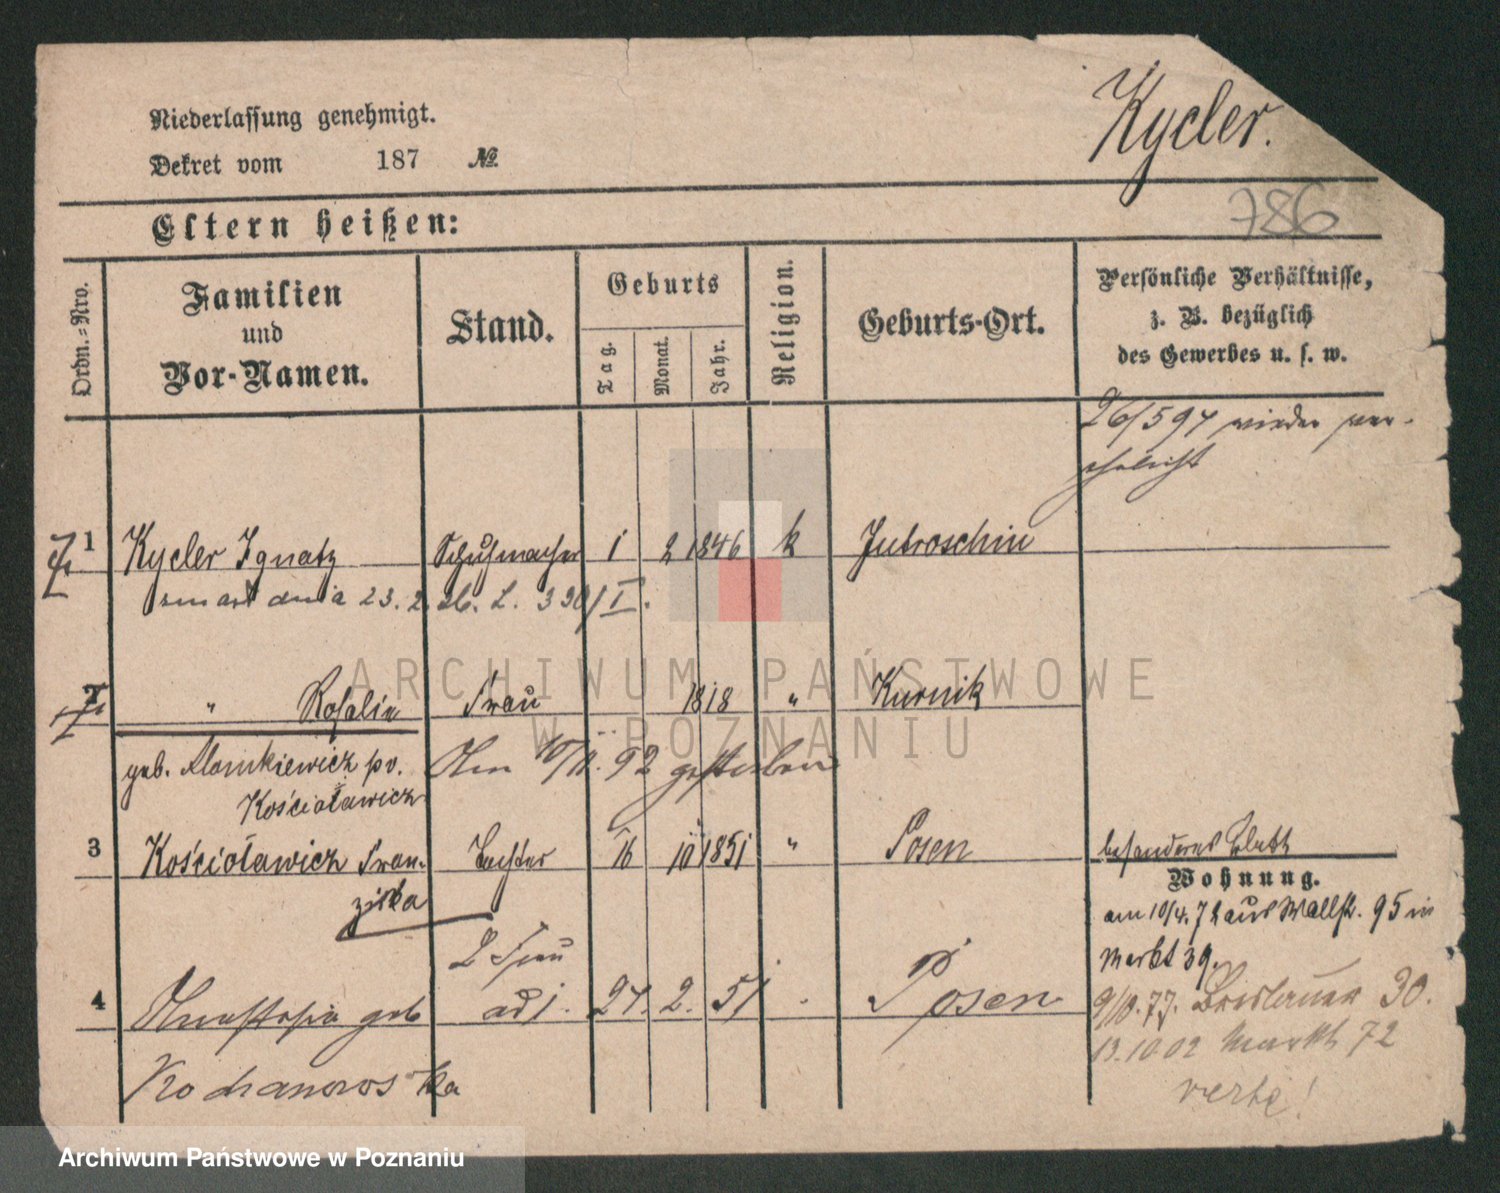 Kycler.
Niederlassung genehmigt.
Dekret vom 187 №
786
Eltern heißen:
Ordn.-Nro.
Familien
und
Vor-Namen.
Stand.
Geburts
Tag.
Monat.
Jahr.
Religion.
Geburts-Ort.
Persönliche Verhältnisse,
z. B. bezüglich
des Gewerbes u. s. w.
26/5 94 wieder ver-
ehelicht
1 Kycler Ignatz Schuhmacher 1 2 1846 k Jutroschin
zmarł dnia 23. 2. 26. L. 330/I.
" Rosalie Frau 1818 " Kurnik
geb. Slomkiewicz pv. Am 10/11. 92 gestorben
Kościoławicz
3 Kościoławicz Fran- Tochter 16 10 1851 " Posen besonderes Blatt
ziska
Wohnung.
am 10/4. 72 aus Wallstr. 95 in
Markt 39.
2 Frau
4 Anastasia geb ad 1. 27. 2. 51 Posen
9/10. 77. Breslauer 30.
13.10 02 Markt 72
verte!
ARCHIWUM PAŃSTWOWE
W POZNANIU
Archiwum Państwowe w Poznaniu